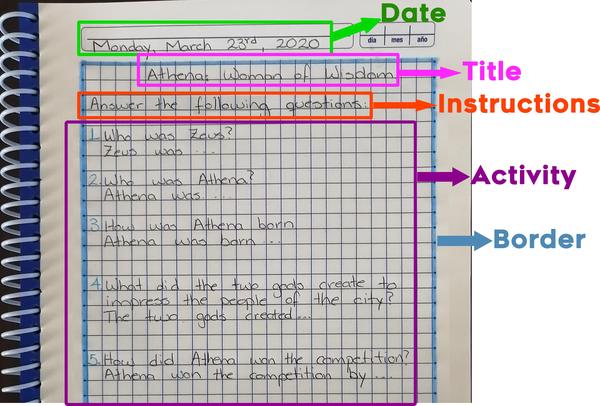 Date
Monday, March 23rd, 2020
día mes año
Athena: Woman of Wisdom
Title
Answer the following questions:
Instructions
1. Who was Zeus?
Zeus was ...
2. Who was Athena?
Athena was ...
Activity
3. How was Athena born
Athena was born ...
Border
4. What did the two gods create to
impress the people of the city?
The two gods created ...
5. How did Athena won the competition?
Athena won the competition by ....